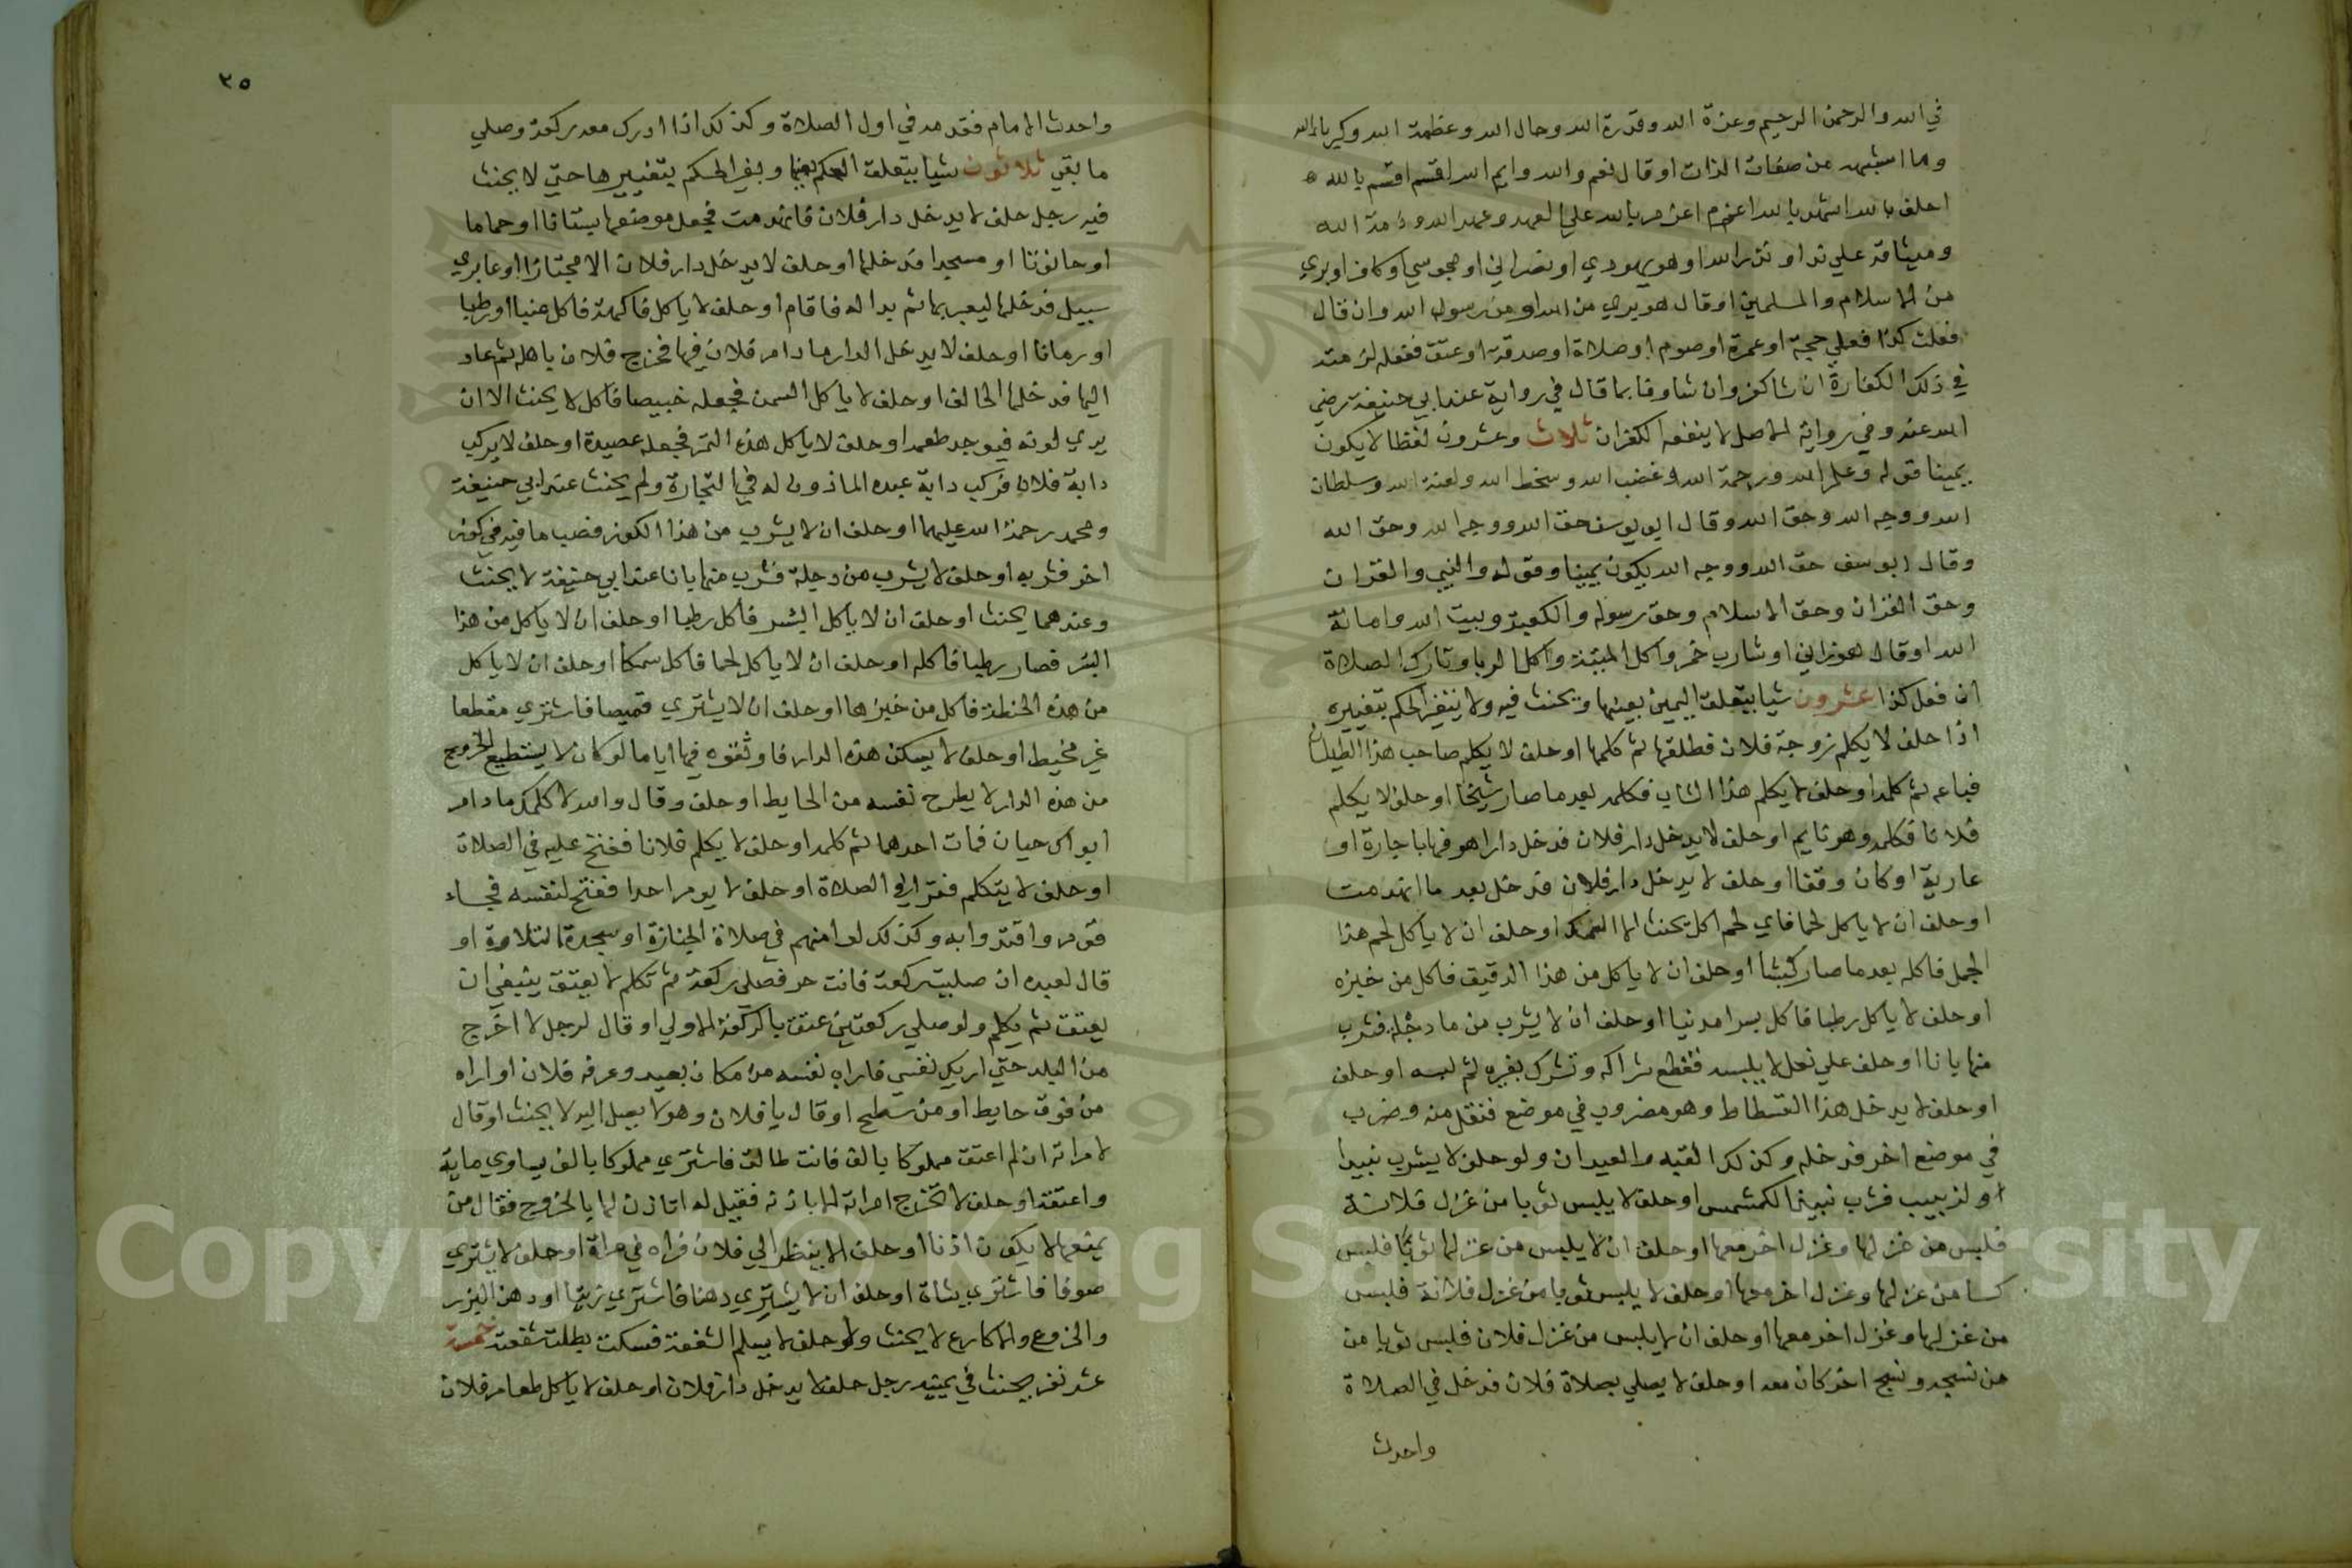 في الله والرحمن الرحيم وعزة الله وقدرة الله وجال الله وعظمة الله وكبريا الله
وما اشبهه من صفات الذات او قال نعم والله وايم الله اقسم اقسم بالله
احلف بالله اشهد بالله اعزم اعزم بالله علي العهد وعهد الله وذمة الله
وميثاقه علي نذر او نذر الله او هو يهودي او نصراني او مجوسي او كافر او بري
من الاسلام والمسلمين او قال هو بري من الله او من رسول الله وان قال
فعلت كذا فعلي حجة او عمرة او صوم او صلاة او صدقة او عتق ففعله لزمته
في ذلك الكفارة ان شا كفر وان شا وفا بما قال في رواية عند ابي حنيفة رضي
الله عنه وفي رواية الاصل لا ينفعه الكفران ثلاث وعشرون لفظا لا يكون
يمينا قوله وعلم الله ورحمة الله وغضب الله وسخط الله ولعنة الله وسلطان
الله ووجه الله وحق الله وقال ابو يوسف حق الله ووجه الله وحق الله
وقال ابو يوسف حق الله ووجه الله يكون يمينا وقوله والنبي والقران
وحق القران وحق الاسلام وحق رسوله والكعبة وبيت الله وامانة
الله او قال هو زاني او شارب خمر واكل الميتة واكل الربا وتارك الصلاة
ان فعل كذا عشرون شيا يتعلق اليمين بعينها ويحنث فيه ولا يتغير الحكم بتغييره
اذا حلف لا يكلم زوجة فلان فطلقها ثم كلمها او حلف لا يكلم صاحب هذا الطيلسان
فباعه ثم كلمه او حلف لا يكلم هذا الشاب فكلمه بعد ما صار شيخا او حلف لا يكلم
فلانا فكلمه وهو نايم او حلف لا يدخل دار فلان فدخل دارا هو فيها باجارة او
عارية او كان وقفا او حلف لا يدخل دار فلان فدخل بعد ما انهدمت
او حلف ان لا ياكل لحما فاي لحم اكل يحنث الا السمك او حلف ان لا ياكل لحم هذا
الحمل فاكله بعد ما صار كبشا او حلف ان لا ياكل من هذا الدقيق فاكل من خبزه
او حلف لا ياكل رطبا فاكل بسرا مدنيا او حلف ان لا يشرب من ما دجلة فشرب
منها بانا او حلف علي نعل لا يلبسه فقطع شراكه وشرك بغيره ثم لبسه او حلف
او حلف لا يدخل هذا الفسطاط وهو مضروب في موضع فنقل منه وضرب
في موضع اخر فدخله وكذلك القبه والعيدان ولو حلف لا يشرب نبيذا
او لزبيب فشرب نبيذ الكمشمس او حلف لا يلبس ثوبا من غزل فلانة
فلبس من غزلها وغزل اخر معها او حلف ان لا يلبس من غزلها ثوبا فلبس
كسا من غزلها وغزل اخر معها او حلف لا يلبس ثوبا من غزل فلانة فلبس
من غزلها وغزل اخر معها او حلف ان لا يلبس من غزل فلان فلبس ثوبا من
من نسجه ونسج اخر كان معه او حلف لا يصلي بصلاة فلان فدخل في الصلاة
واحدث
٢٥
واحدث الامام فقدمه في اول الصلاة وكذلك اذا ادرك معه ركعة وصلي
ما بقي ثلاثون شيا يتعلق الحكم بعينها ويغير الحكم بتغييرها حتي لا يحنث
فيه رجل حلف لا يدخل دار فلان فانهدمت فجعل موضعها بستانا او حماما
او حانوتا او مسجدا فدخلها او حلف لا يدخل دار فلان الا مجتازا او عابري
سبيل فدخلها ليعبر بها ثم بدا له فاقام او حلف لا ياكل فاكهة فاكل عنبا او رطبا
او رمانا او حلف لا يدخل الدار ما دام فلان فيها فخرج فلان باهله ثم عاد
اليها فدخلها الحالف او حلف لا ياكل السمن فجعله خبيصا فاكل لا يحنث الا ان
يري لونه فيوجد طعمه او حلف لا ياكل هذه التمر فجعله عصيدة او حلف لا يركب
دابة فلان فركب دابة عبده الماذون له في التجارة ولم يحنث عند ابي حنيفة
ومحمد رحمة الله عليهما او حلف ان لا يشرب من هذا الكوز فصب ما فيه في كوز
اخر فشربه او حلف لا يشرب من دجلة فشرب منها بانا عند ابي حنيفة لا يحنث
وعندهما يحنث او حلف ان لا ياكل البسر فاكل رطبا او حلف ان لا ياكل من هذا
البسر فصار رطبا فاكله او حلف ان لا ياكل لحما فاكل سمكا او حلف ان لا ياكل
من هذه الحنطة فاكل من خبزها او حلف ان لا يشتري قميصا فاشتري مقطعا
غير مخيط او حلف لا يسكن هذه الدار فاوثقوه فيها اياما لو كان لا يستطيع الخروج
من هذه الدار لا يطرح نفسه من الحايط او حلف وقال والله لا كلمك ما دام
ابواك حيان فمات احدهما ثم كلمه او حلف لا يكلم فلانا ففتح عليه في الصلاة
او حلف لا يتكلم فقرا في الصلاة او حلف لا يوم احدا ففتح لنفسه فجاء
قوم واقتدوا به وكذلك لو امنهم في صلاة الجنازة او سجدة التلاوة او
قال لعبده ان صليت ركعة فانت حر فصلي ركعة ثم تكلم لا يعتق ينبغي ان
يعتق ثم يكلم ولو صلي ركعتين عتق بالركعة الاولي او قال لرجل لا اخرج
من البلد حتي اريك نفسي فاراه نفسه من مكان بعيد وعرفه فلان او اراه
من فوق حايط او من سطح او قال يا فلان وهو لا يصل اليه لا يحنث او قال
لامراته ان لم اعتق مملوكا بالف فانت طالق فاشتري مملوكا بالف يساوي ماية
واعتقه او حلف لا تخرج امراته الا باذنه فقيل له اتاذن لها بالخروج فقال من
يمنعها لا يكون اذنا او حلف لا ينظر الي فلان فراه في مراة او حلف لا يشتري
صوفا فاشتري شاة او حلف ان لا يشتري دهنا فاشتري زيتا او دهن البزر
والخروع والاكارع لا يحنث ولو حلف لا يسلم الشفعة فسكت بطلت شفعته خمسة
عشر نفر يحنث في يمينه رجل حلف لا يدخل دار فلان او حلف لا ياكل طعام فلان